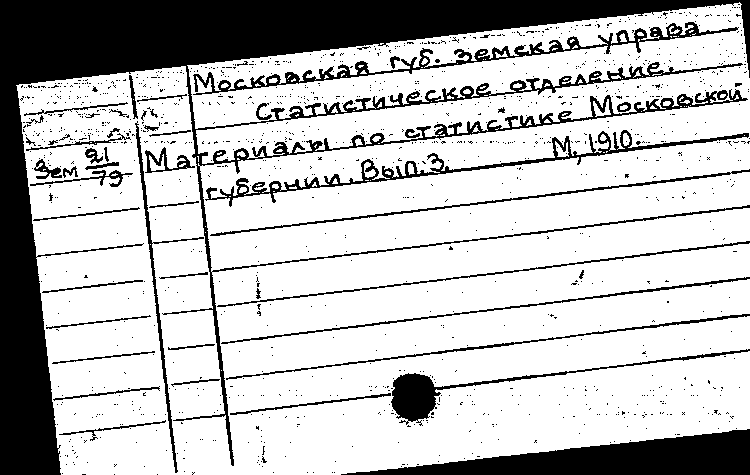 Московская губ. земская управа.
Статистическое отделение.
Зем 21/79
Материалы по статистике Московской
губернии. Вып. 3. М, 1910.